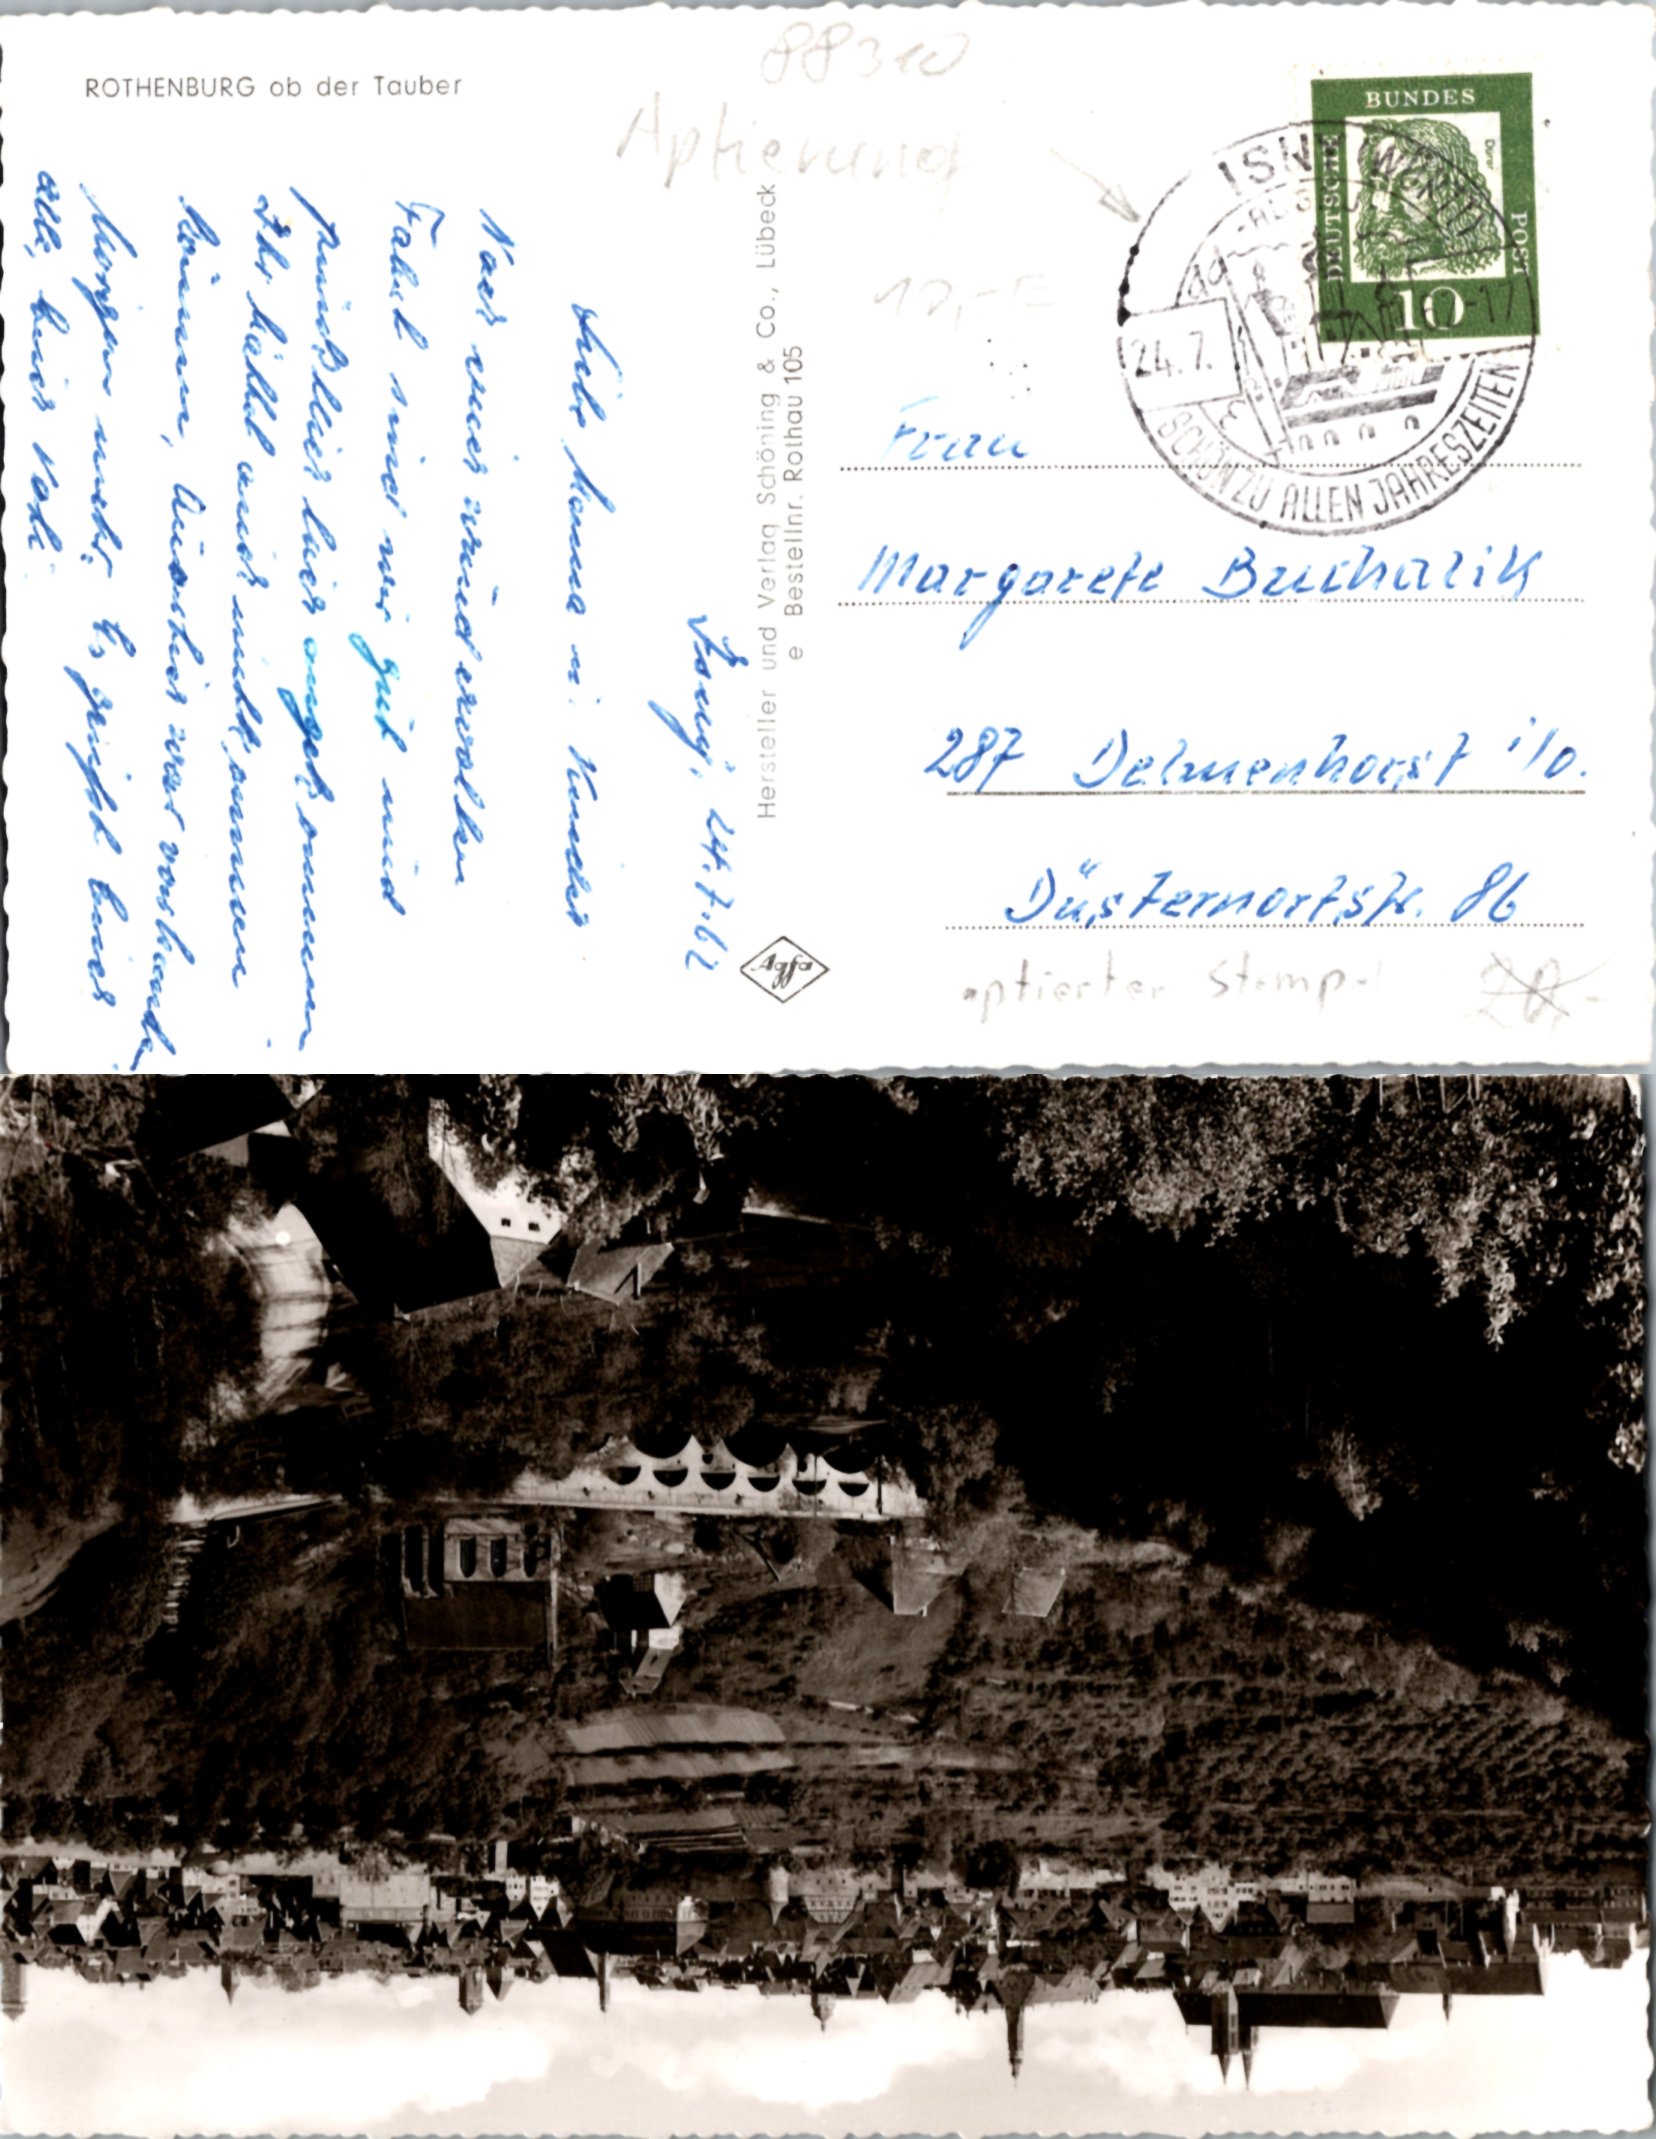 ROTHENBURG ob der Tauber
88310
Aptierung
10,-
BUNDES
DEUTSCHE
POST
Dürer
10
ISNY (WÜRTT)
24.7.
-17
SCHÖN ZU ALLEN JAHRESZEITEN
Hersteller und Verlag Schöning & Co., Lübeck
e Bestellnr. Rothau 105
Isny, 24.7.62
Liebe Mama u. Kinder
Nach einer wundervollen
Fahrt sind wir gut und
pünktlich hier angekommen
Ihr hättet auch mitkommen
können, Aussicht war vorhanden
Morgen mehr. Es grüßt Euch
alle, Euer Vati.
Frau
Margarete Buchalik
287 Delmenhorst i/O.
Düsternortstr. 86
Agfa
aptierter Stempel
20,-